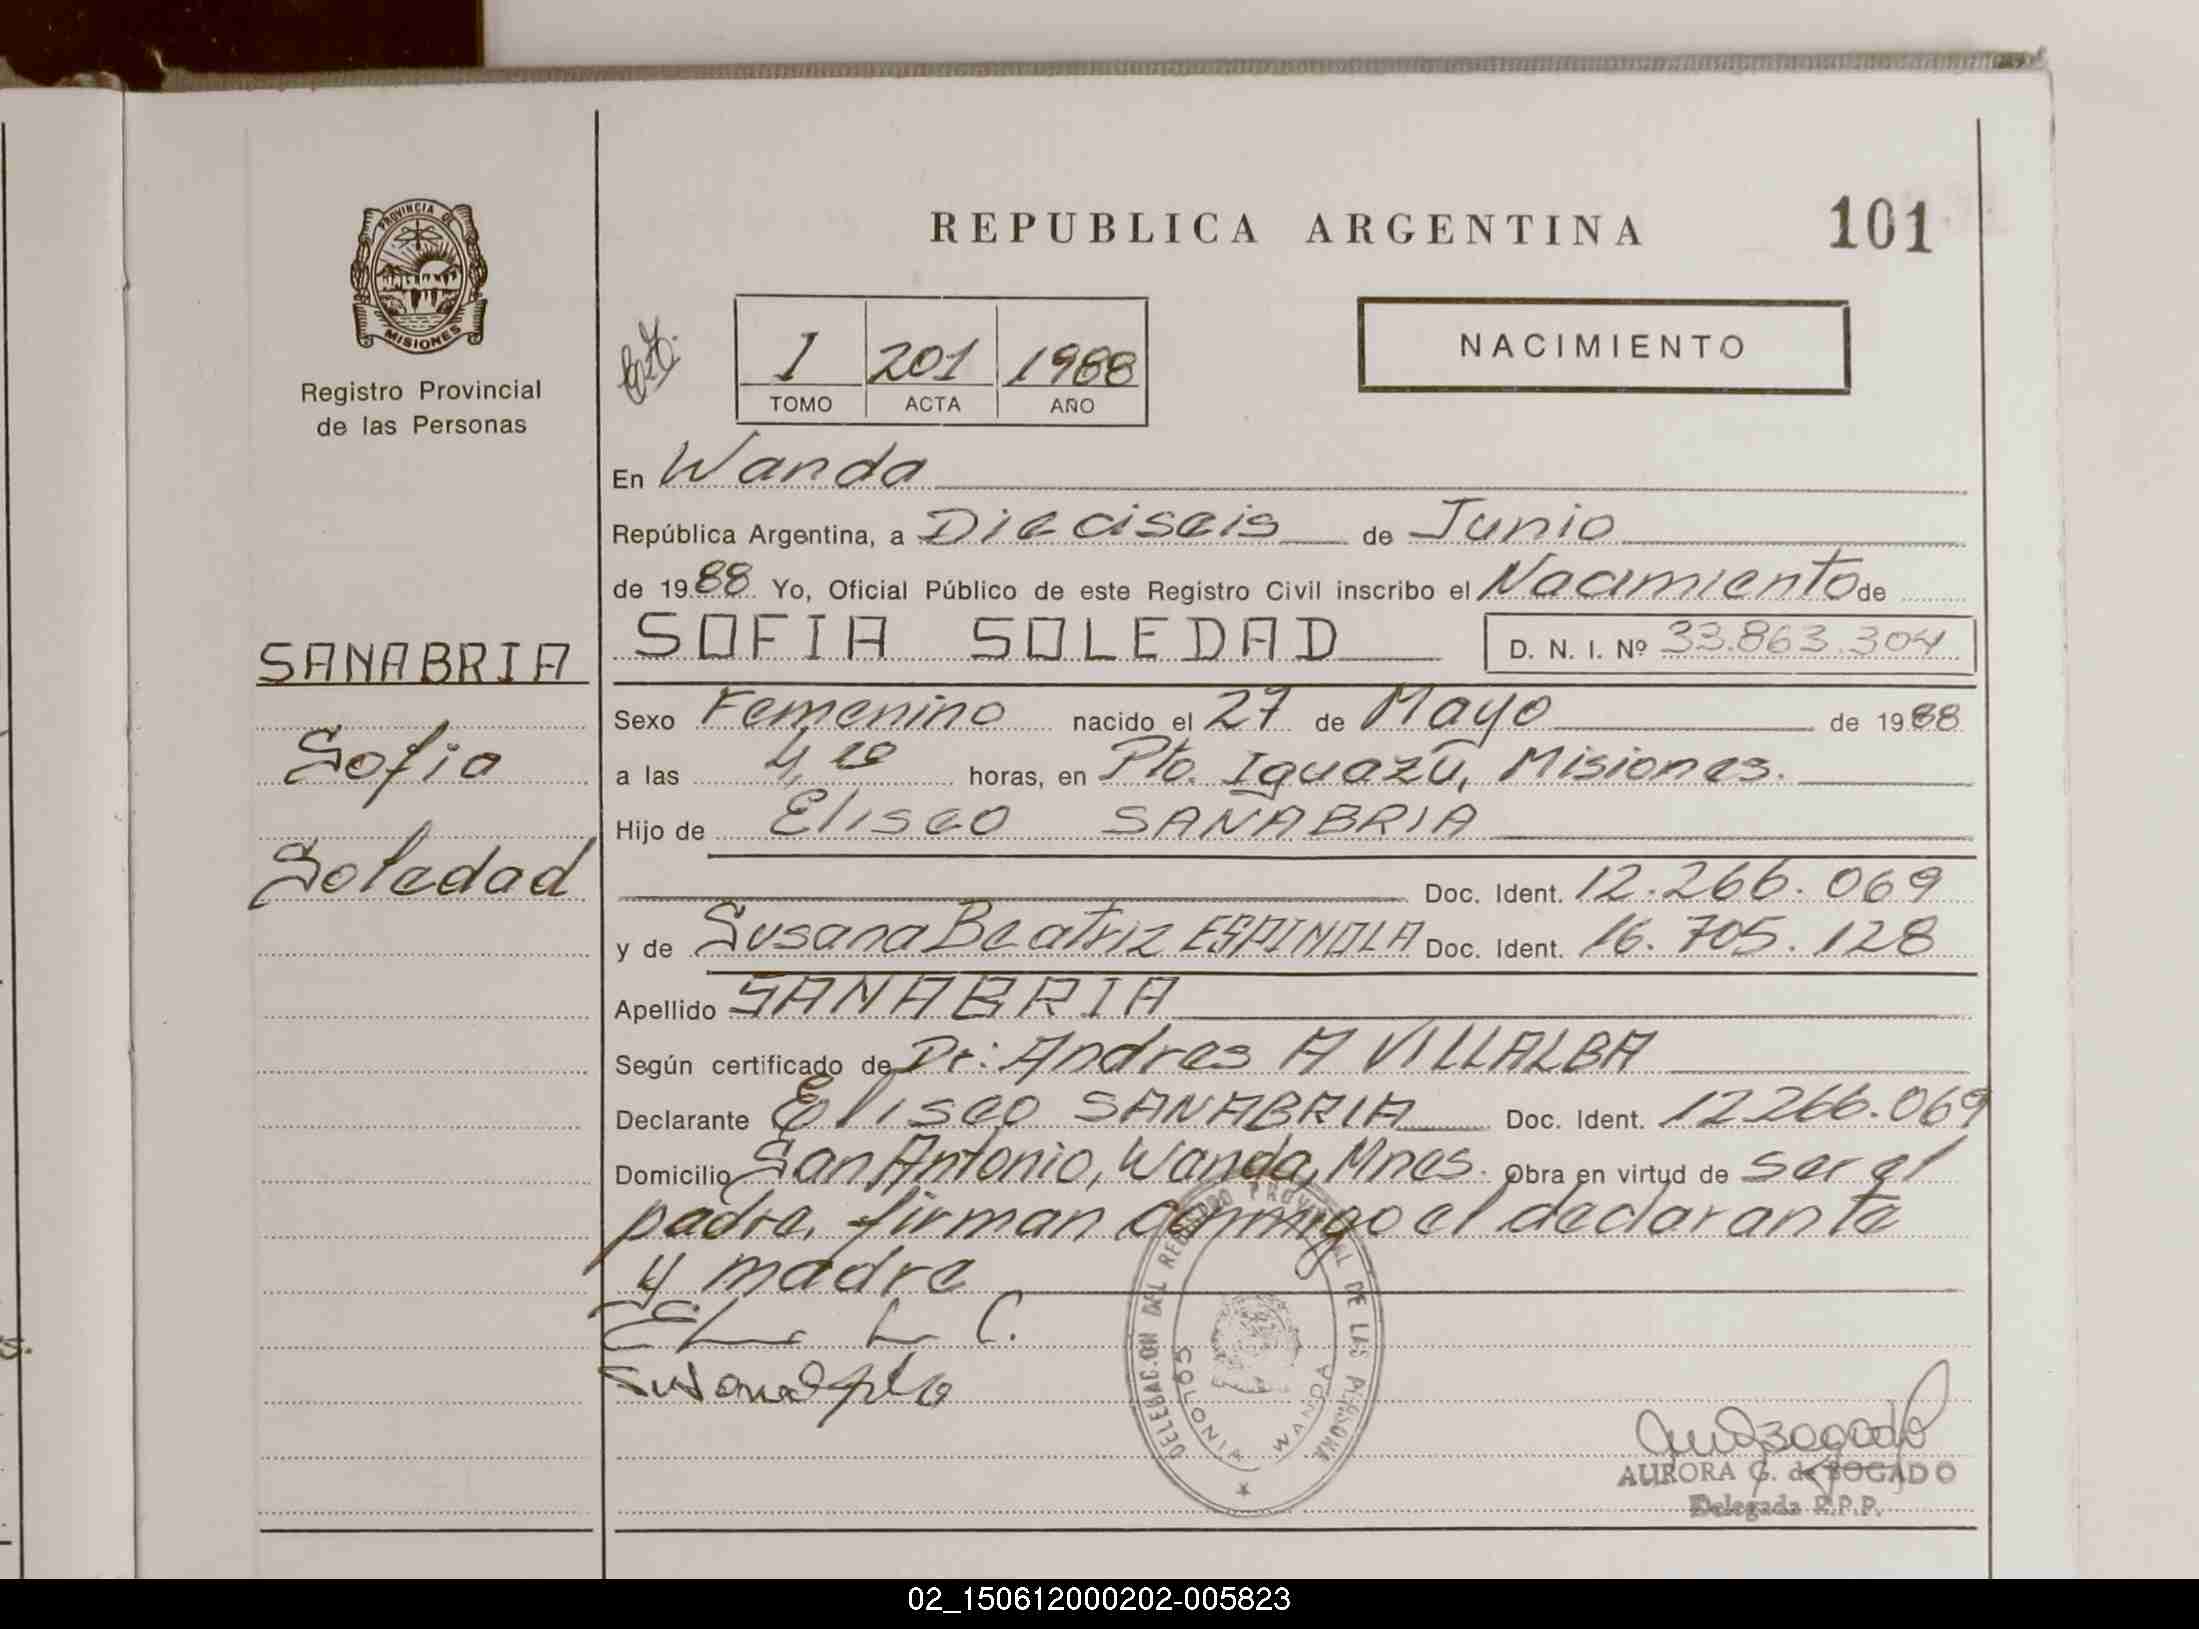 PROVINCIA DE
MISIONES
Registro Provincial
de las Personas
SANABRIA
Sofia
Soledad
REPUBLICA ARGENTINA
101
I 201 1988
TOMO ACTA AÑO
NACIMIENTO
En Wanda
República Argentina, a Dieciseis de Junio
de 1988 Yo, Oficial Público de este Registro Civil inscribo el Nacimiento de
SOFIA SOLEDAD D. N. I. Nº 33.863.304
Sexo Femenino nacido el 27 de Mayo de 1988
a las 4,10 horas, en Pto. Iguazú, Misiones.
Hijo de Eliseo SANABRIA
Doc. Ident. 12.266.069
y de Susana Beatriz ESPINOLA Doc. Ident. 16.705.128
Apellido SANABRIA
Según certificado de Dr: Andres A VILLALBA
Declarante Eliseo SANABRIA Doc. Ident. 12266.069
Domicilio San Antonio, Wanda, Mnes. Obra en virtud de ser el
padre, firman conmigo el declarante
y madre
DELEGACION DEL REGISTRO PROVINCIAL DE LAS PERSONAS
COLONIA WANDA
AURORA G. de BOGADO
Delegada R.P.P.
02_150612000202-005823